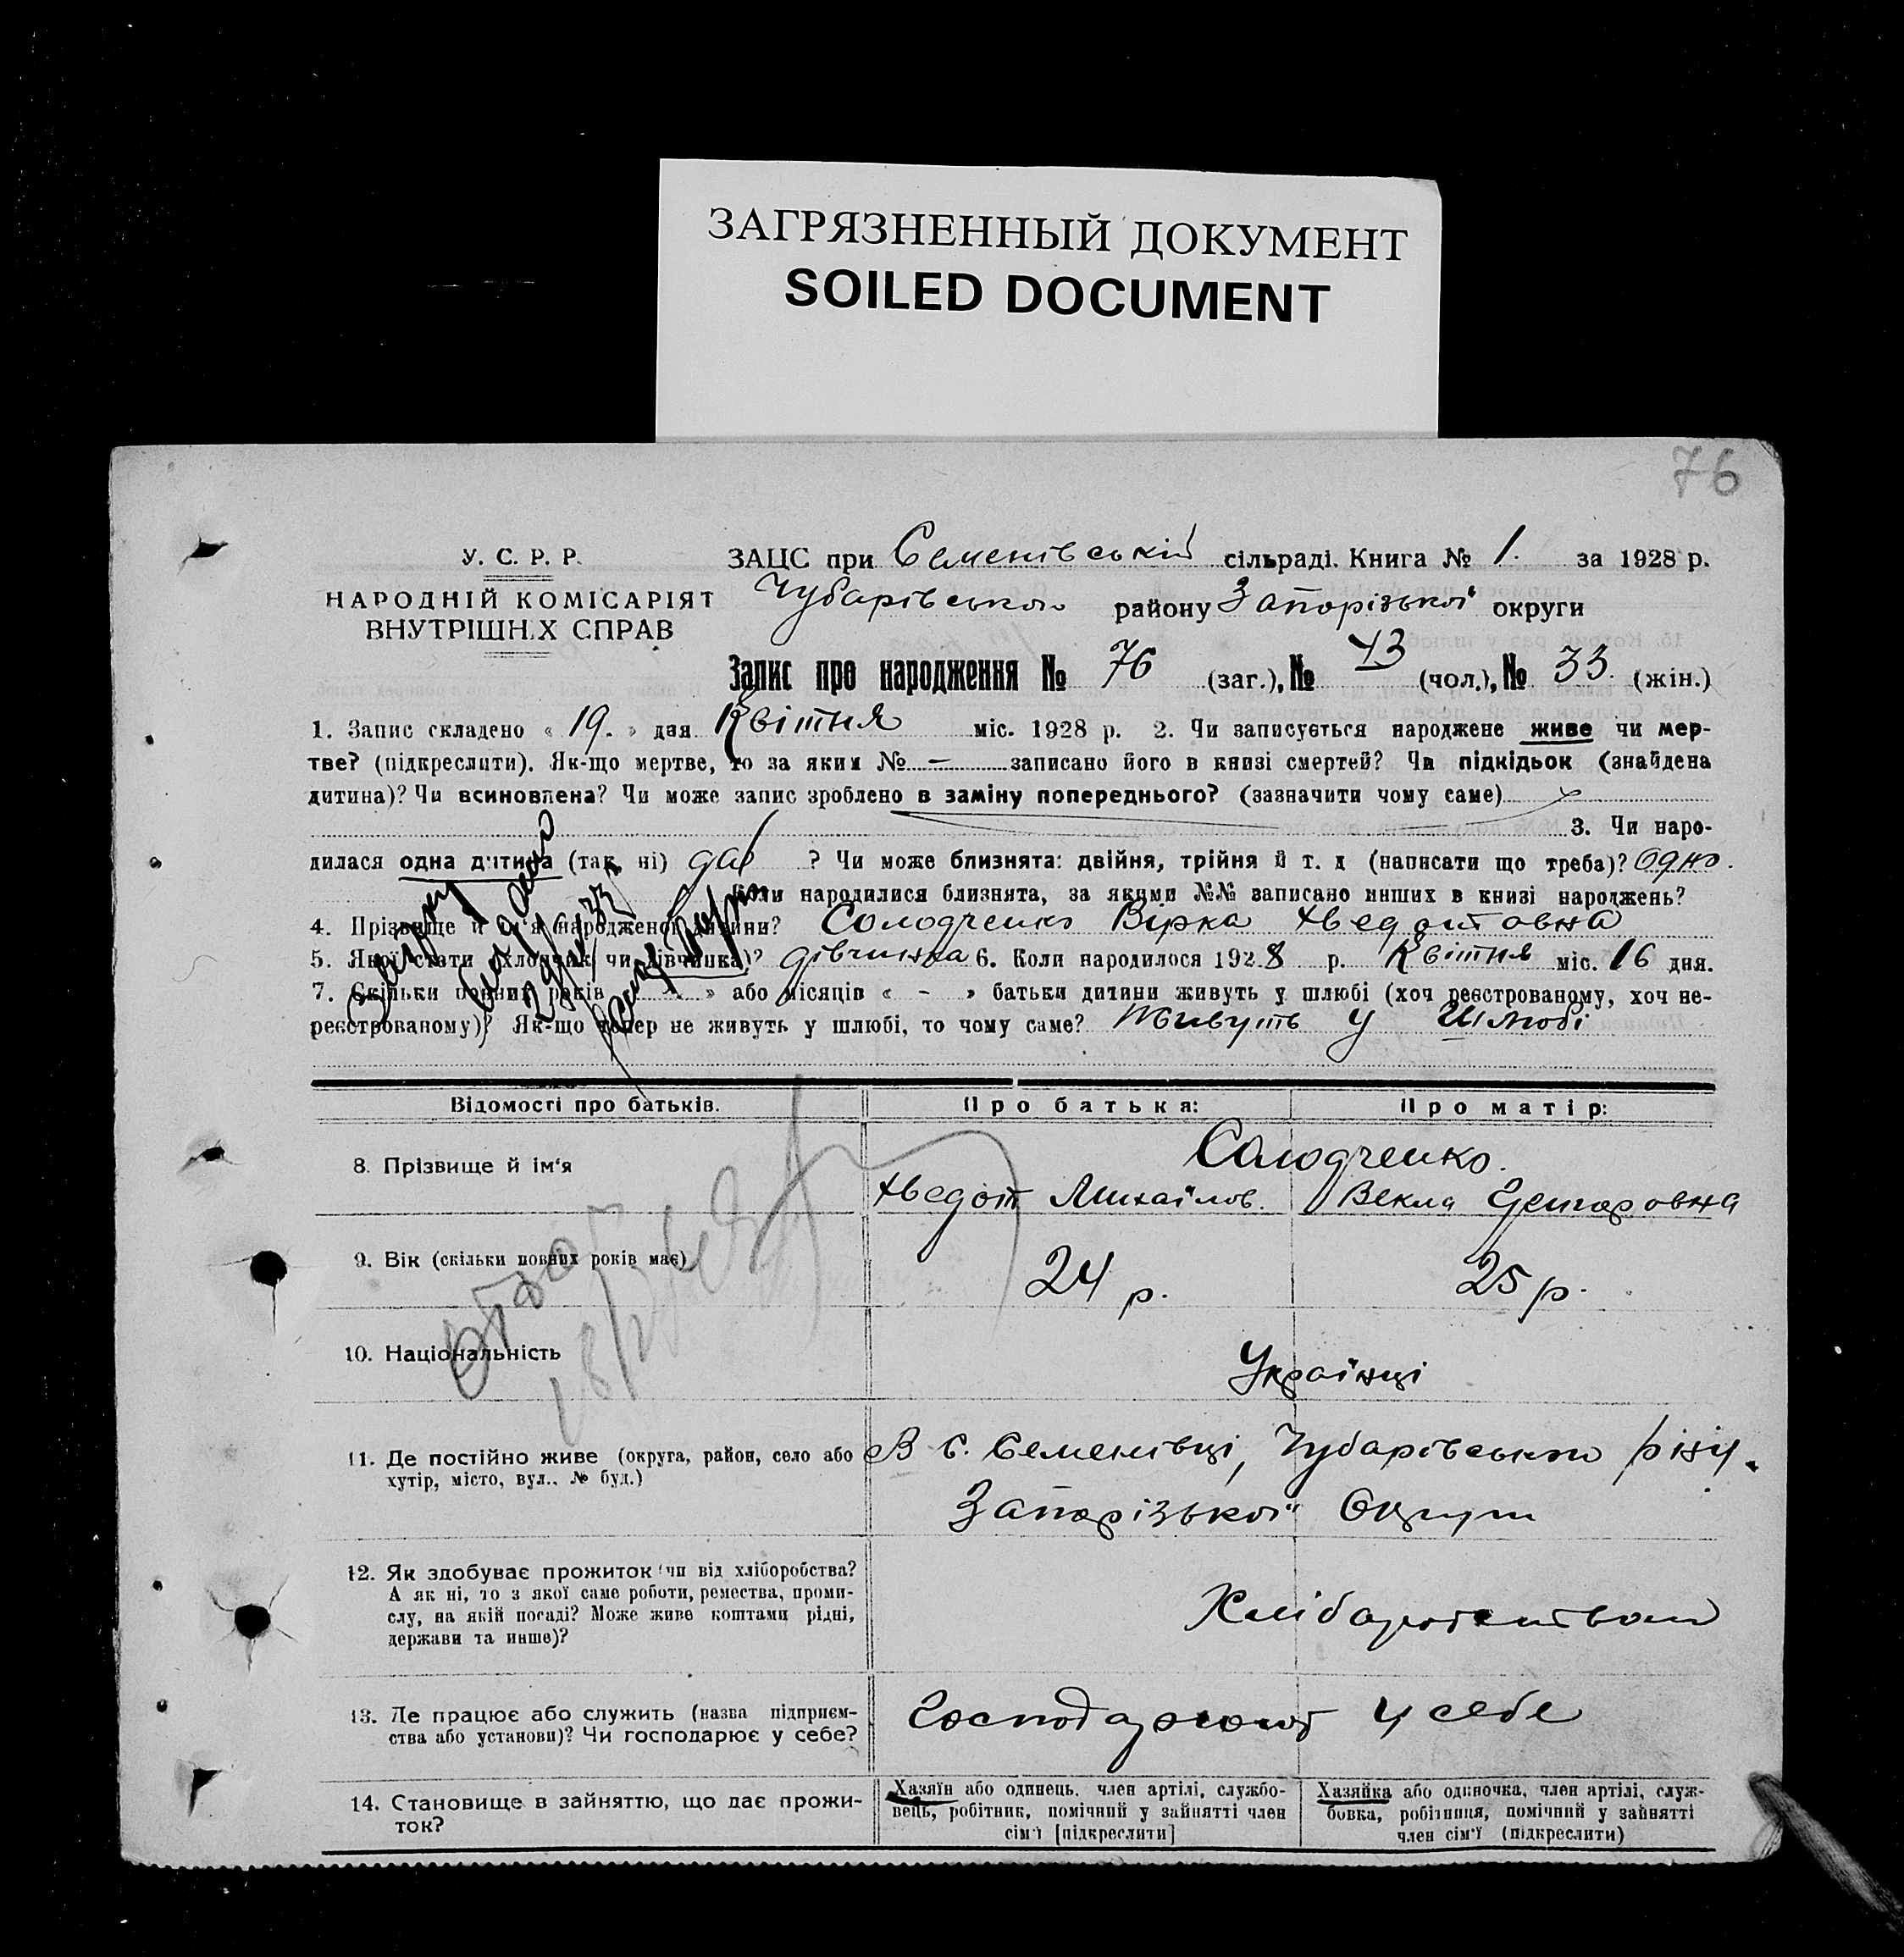 ЗАГРЯЗНЕННЫЙ ДОКУМЕНТ
SOILED DOCUMENT
76
У. С. Р. Р.
НАРОДНІЙ КОМІСАРІЯТ
ВНУТРІШНІХ СПРАВ
ЗАЦС при Семенівській сільраді. Книга № 1. за 1928 р.
Чубарівського району Запорізької округи
Запис про народження № 76 (заг.), № 43 (чол.), № 33. (жін.)
1. Запис складено « 19. » дня Квітня міс. 1928 р. 2. Чи записується народжене живе чи мер-
тве? (підкреслити). Як-що мертве, то за яким № — записано його в книзі смертей? Чи підкідьок (знайдена
дитина)? Чи всиновлена? Чи може запис зроблено в заміну попереднього? (зазначити чому саме)
3. Чи наро-
дилася одна дитина (так, ні) ? Чи може близнята: двійня, трійня й т. д (написати що треба)? Одно.
Коли народилися близнята, за якими №№ записано инших в книзі народжень?
4. Прізвище й ім'я народженої дитини? Солодченко Вірка Хведотовна
5. Якої стати (хлопчик чи дівчинка)? дівчинка 6. Коли народилося 1928 р. Квітня міс. 16 дня.
7. Скільки повних років « » або місяців « - » батьки дитини живуть у шлюбі (хоч реєстрованому, хоч не-
реєстрованому)? Як-що тепер не живуть у шлюбі, то чому саме? Живуть у Шлюбі
Відомості про батьків.
Про батька:
Про матір:
8. Прізвище й ім'я
Солодченко.
Хведот Михайлов.
Векла
9. Вік (скільки повних років має)
24 р.
25 р.
10. Національність
Українці
11. Де постійно живе (округа, район, село або
хутір, місто, вул., № буд.)
В с. Семенівці, Чубарівського р-ну.
Запорізької Округи
12. Як здобуває прожиток (чи від хліборобства?
А як ні, то з якої саме роботи, ремества, проми-
слу, на якій посаді? Може живе коштами рідні,
держави та инше)?
Хліборобством
13. Де працює або служить (назва підприєм-
ства або установи)? Чи господарює у себе?
Господарюют у себе
14. Становище в зайняттю, що дає прожи-
ток?
Хазяїн або одинець, член артілі, службо-
вець, робітник, помічний у зайнятті член
сім'ї [підкреслити]
Хазяйка або одиночка, член артілі, служ-
бовка, робітниця, помічний у зайнятті
член сім'ї (підкреслити)